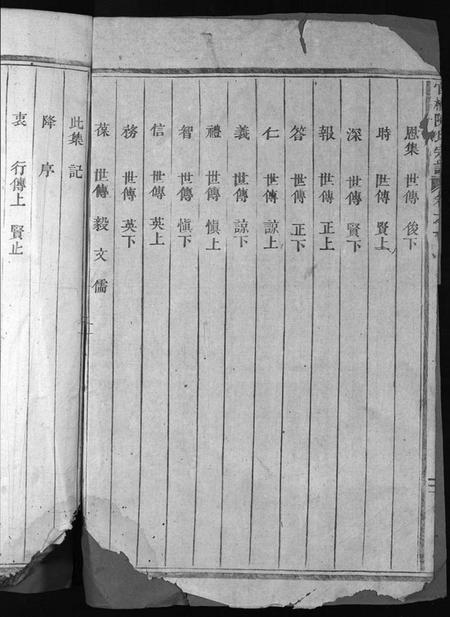 恩集 世傳 俊下
時 世傳 賢上
深 世傳 賢下
報 世傳 正上
答 世傳 正下
仁 世傳 諒上
義 世傳 諒下
禮 世傳 慎上
智 世傳 慎下
信 世傳 英上
務 世傳 英下
葆 世傳 毅文儒
此集 記
降 序
衷 行傳上 賢止